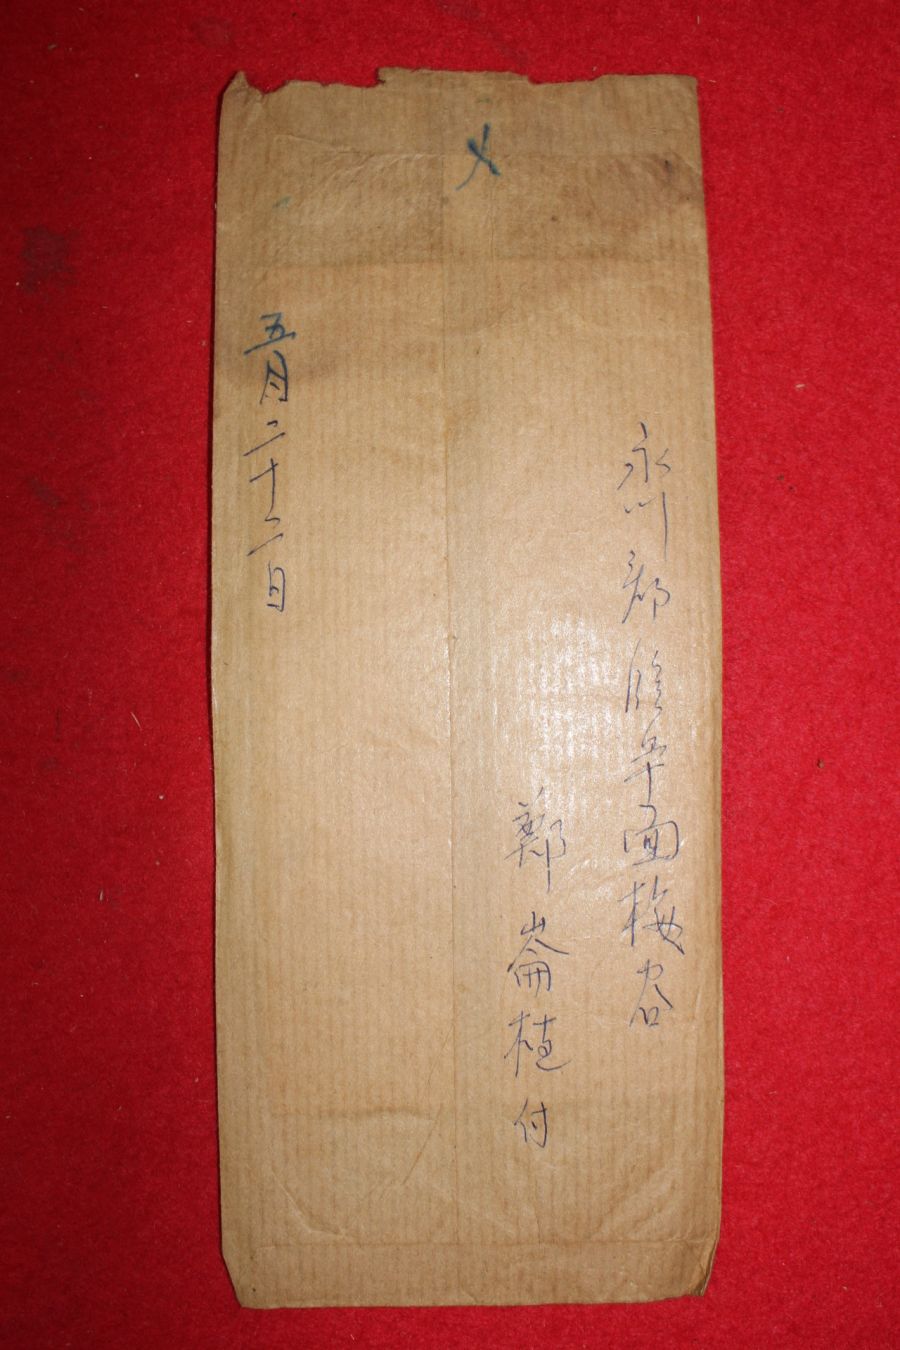 永川郡臨皐面梅谷
鄭崙植付
五月二十二日